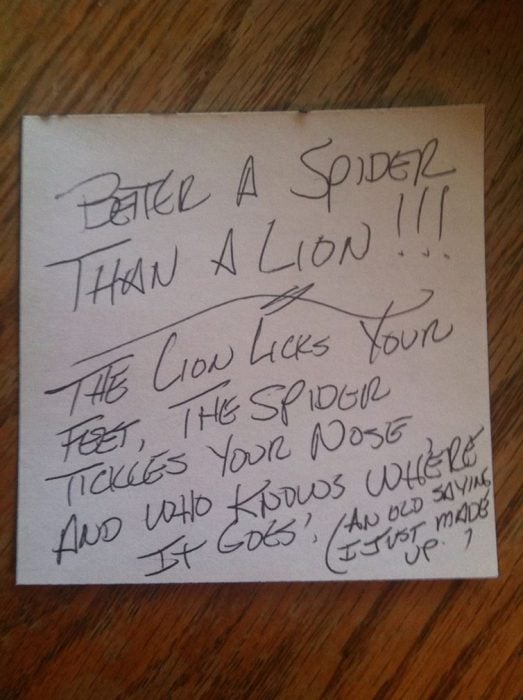 BETTER A SPIDER
THAN A LION!!!
THE LION LICKS YOUR
FEET, THE SPIDER
TICKLES YOUR NOSE,
AND WHO KNOWS WHERE
IT GOES! (AN OLD SAYING
I JUST MADE
UP.)